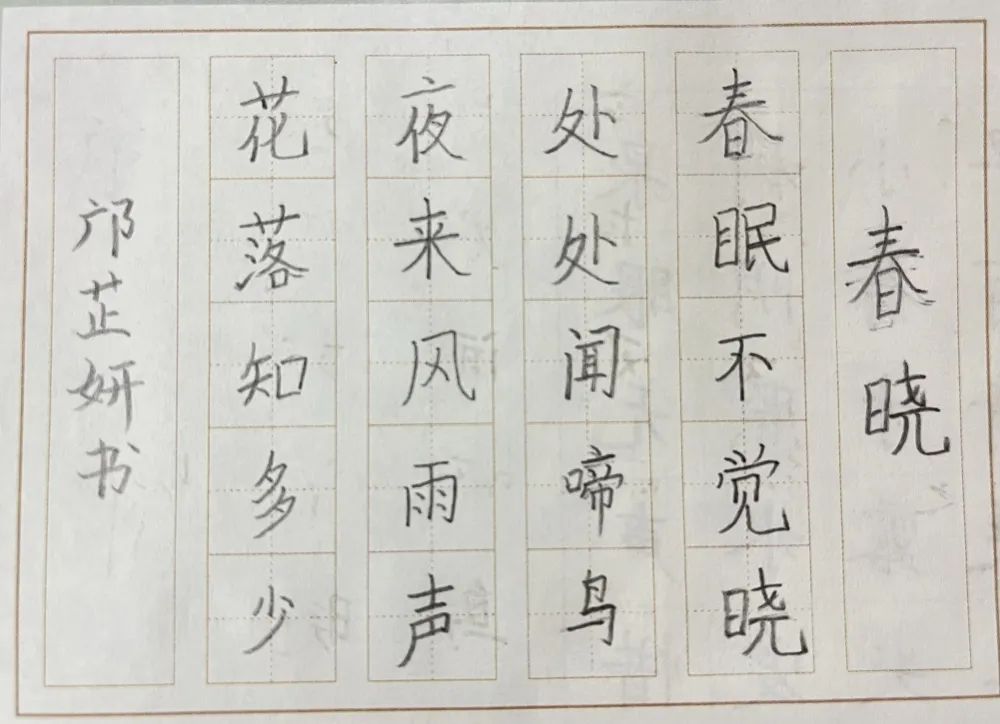 春晓
春眠不觉晓
处处闻啼鸟
夜来风雨声
花落知多少
邝芷妍书